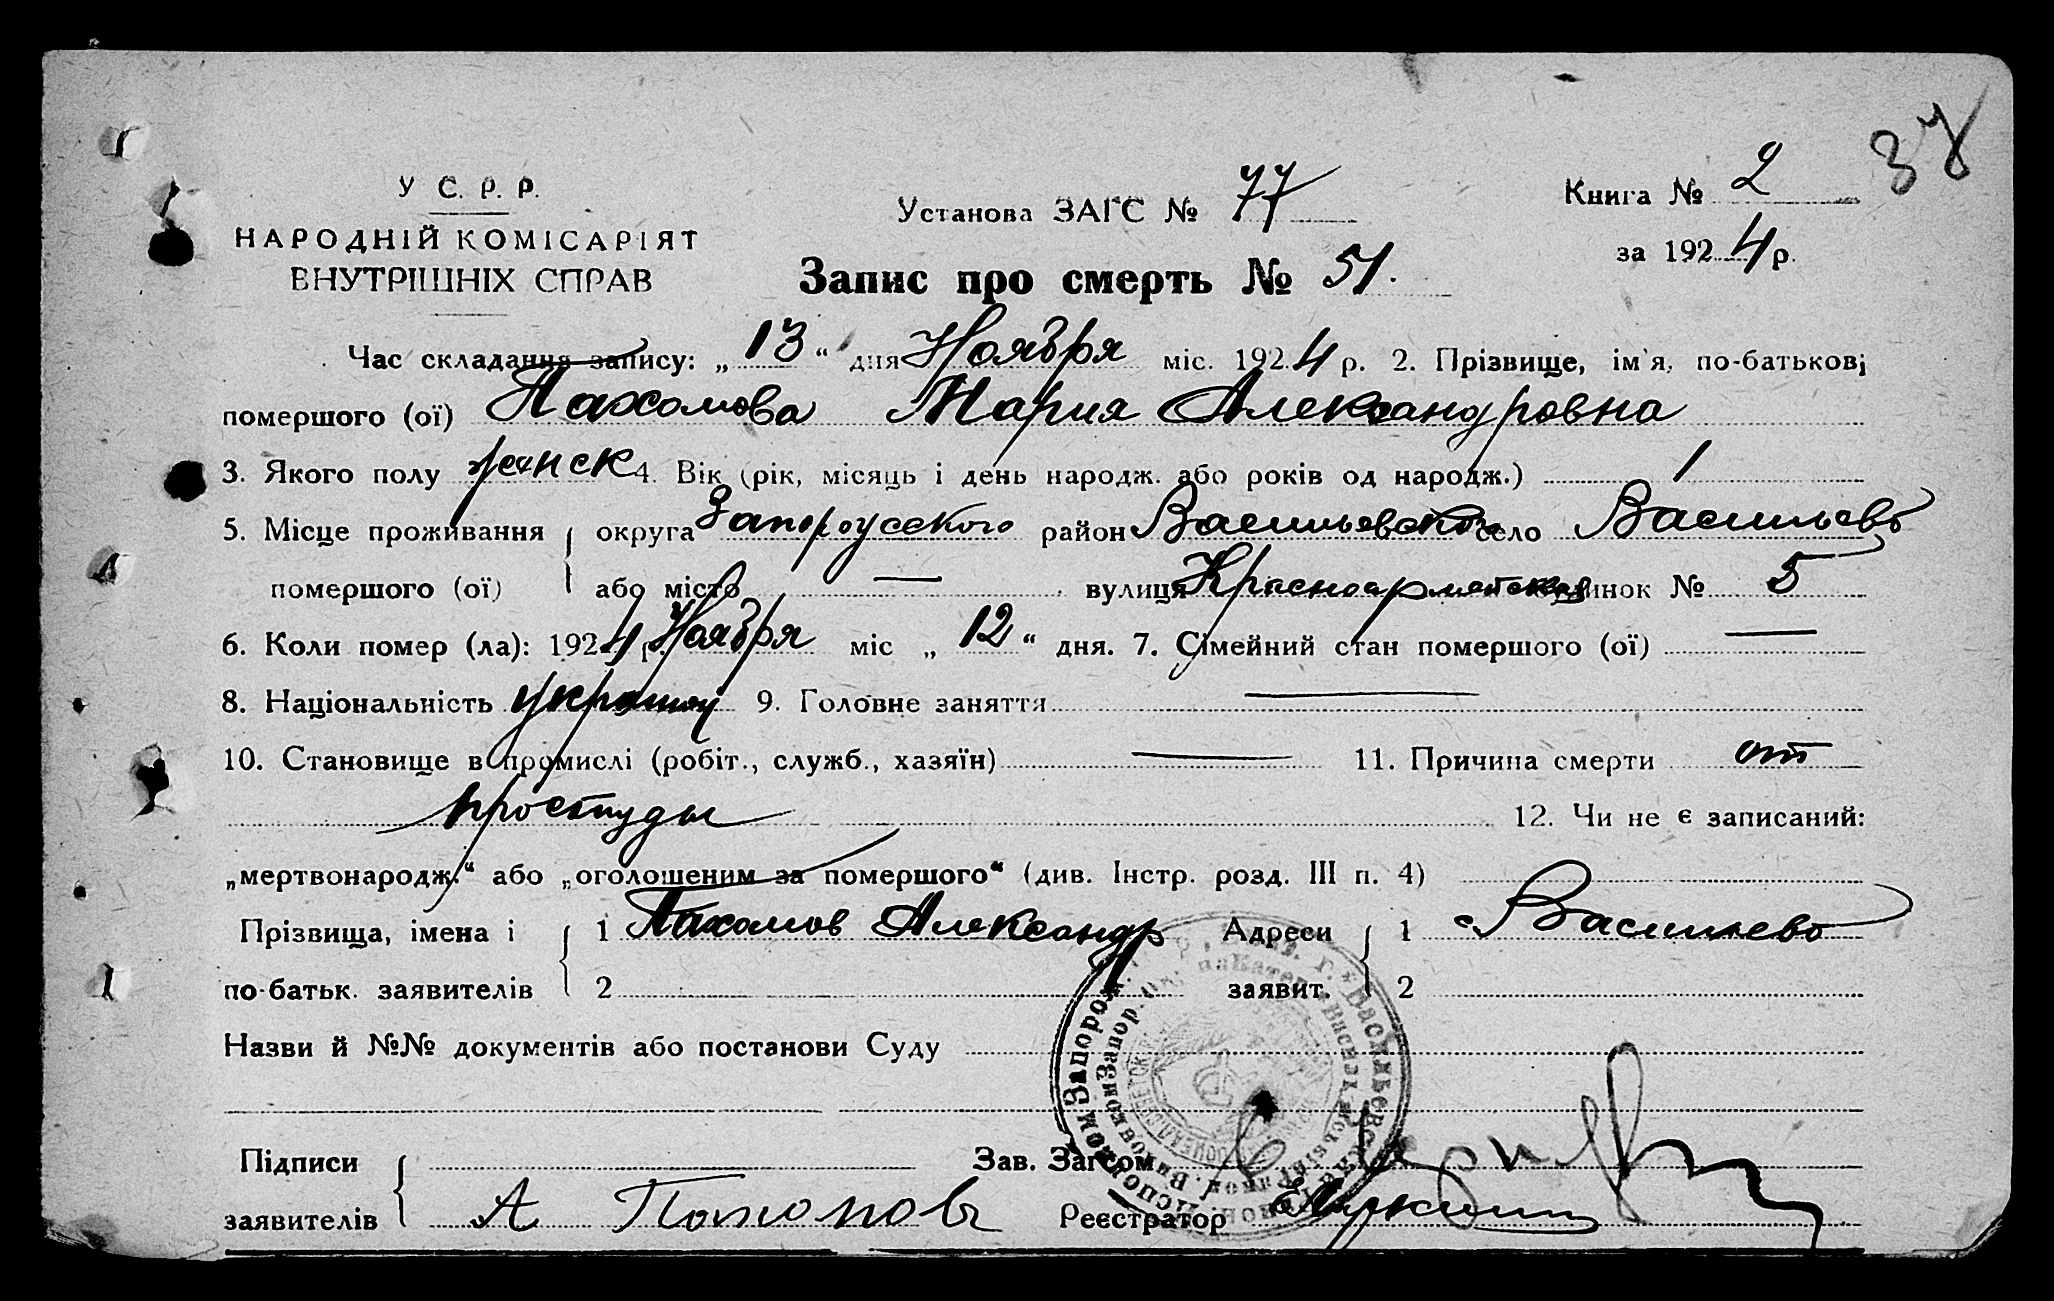 37
У С. Р. Р.
НАРОДНІЙ КОМІСАРІЯТ
ВНУТРІШНІХ СПРАВ
Установа ЗАГС № 77
Книга № 2
за 1924 р.
Запис про смерть № 51.
Час складання запису: „13“ дня Ноября міс. 1924 р. 2. Прізвище, ім'я, по-батькові
помершого (ої) Пахомова Мария Александровна
3. Якого полу женск 4. Вік (рік, місяць і день народж. або років од народж.) 1
5. Місце проживання округа Запорожского район Васильевского село Васильевк
помершого (ої) або місто — вулиця Красноармейская будинок № 5
6. Коли помер (ла): 1924 р. Ноября міс „12“ дня. 7. Сімейний стан помершого (ої) —
8. Національність 9. Головне заняття —
10. Становище в промислі (робіт., служб., хазяїн) — 11. Причина смерти от
простуды 12. Чи не є записаний:
„мертвонародж.“ або „оголошеним за помершого“ (див. Інстр. розд. III п. 4)
Прізвища, імена і 1 Пахомов Александр Адреси 1 с Васильево
по-батьк. заявителів 2 заявит. 2
Назви й №№ документів або постанови Суду
Підписи Зав. Загсом
заявителів А Пахомовъ Реєстратор